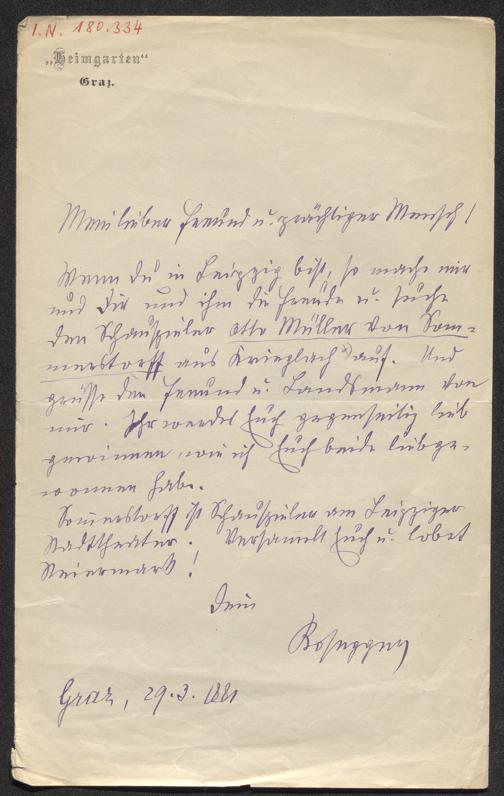 I.N. 180.334
„Heimgarten“
Graz.
Mein lieber Freund u. prächtiger Mensch!
Wenn du in Leipzig bist, so mache mir
und Dir und ihm die Freude u. suche
den Schauspieler Otto Müller von Som-
merstorff aus Krieglach x) auf. Und
grüsse den Freund u. Landsmann von
mir. Ihr werdet Euch gegenseitig lieb
gewinnen, wie ich Euch beide liebge-
wonnen habe.
Somerstorff ist Schauspieler am Leipziger
Stadttheater. Versamelt Euch u. lobet
Steiermark!
Dein
Rosegger
Graz, 29.3.1881